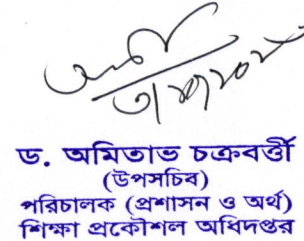 ড. অমিতাভ চক্রবর্ত্তী
(উপসচিব)
পরিচালক (প্রশাসন ও অর্থ)
শিক্ষা প্রকৌশল অধিদপ্তর